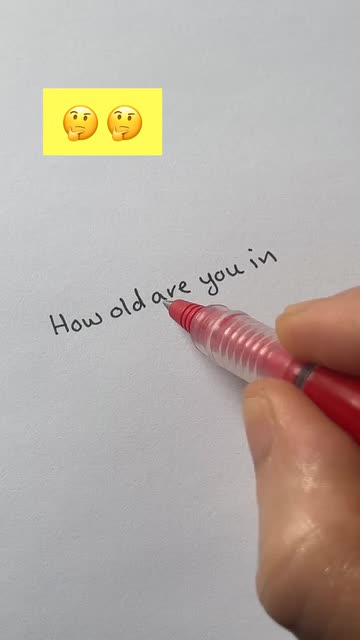 How old are you in